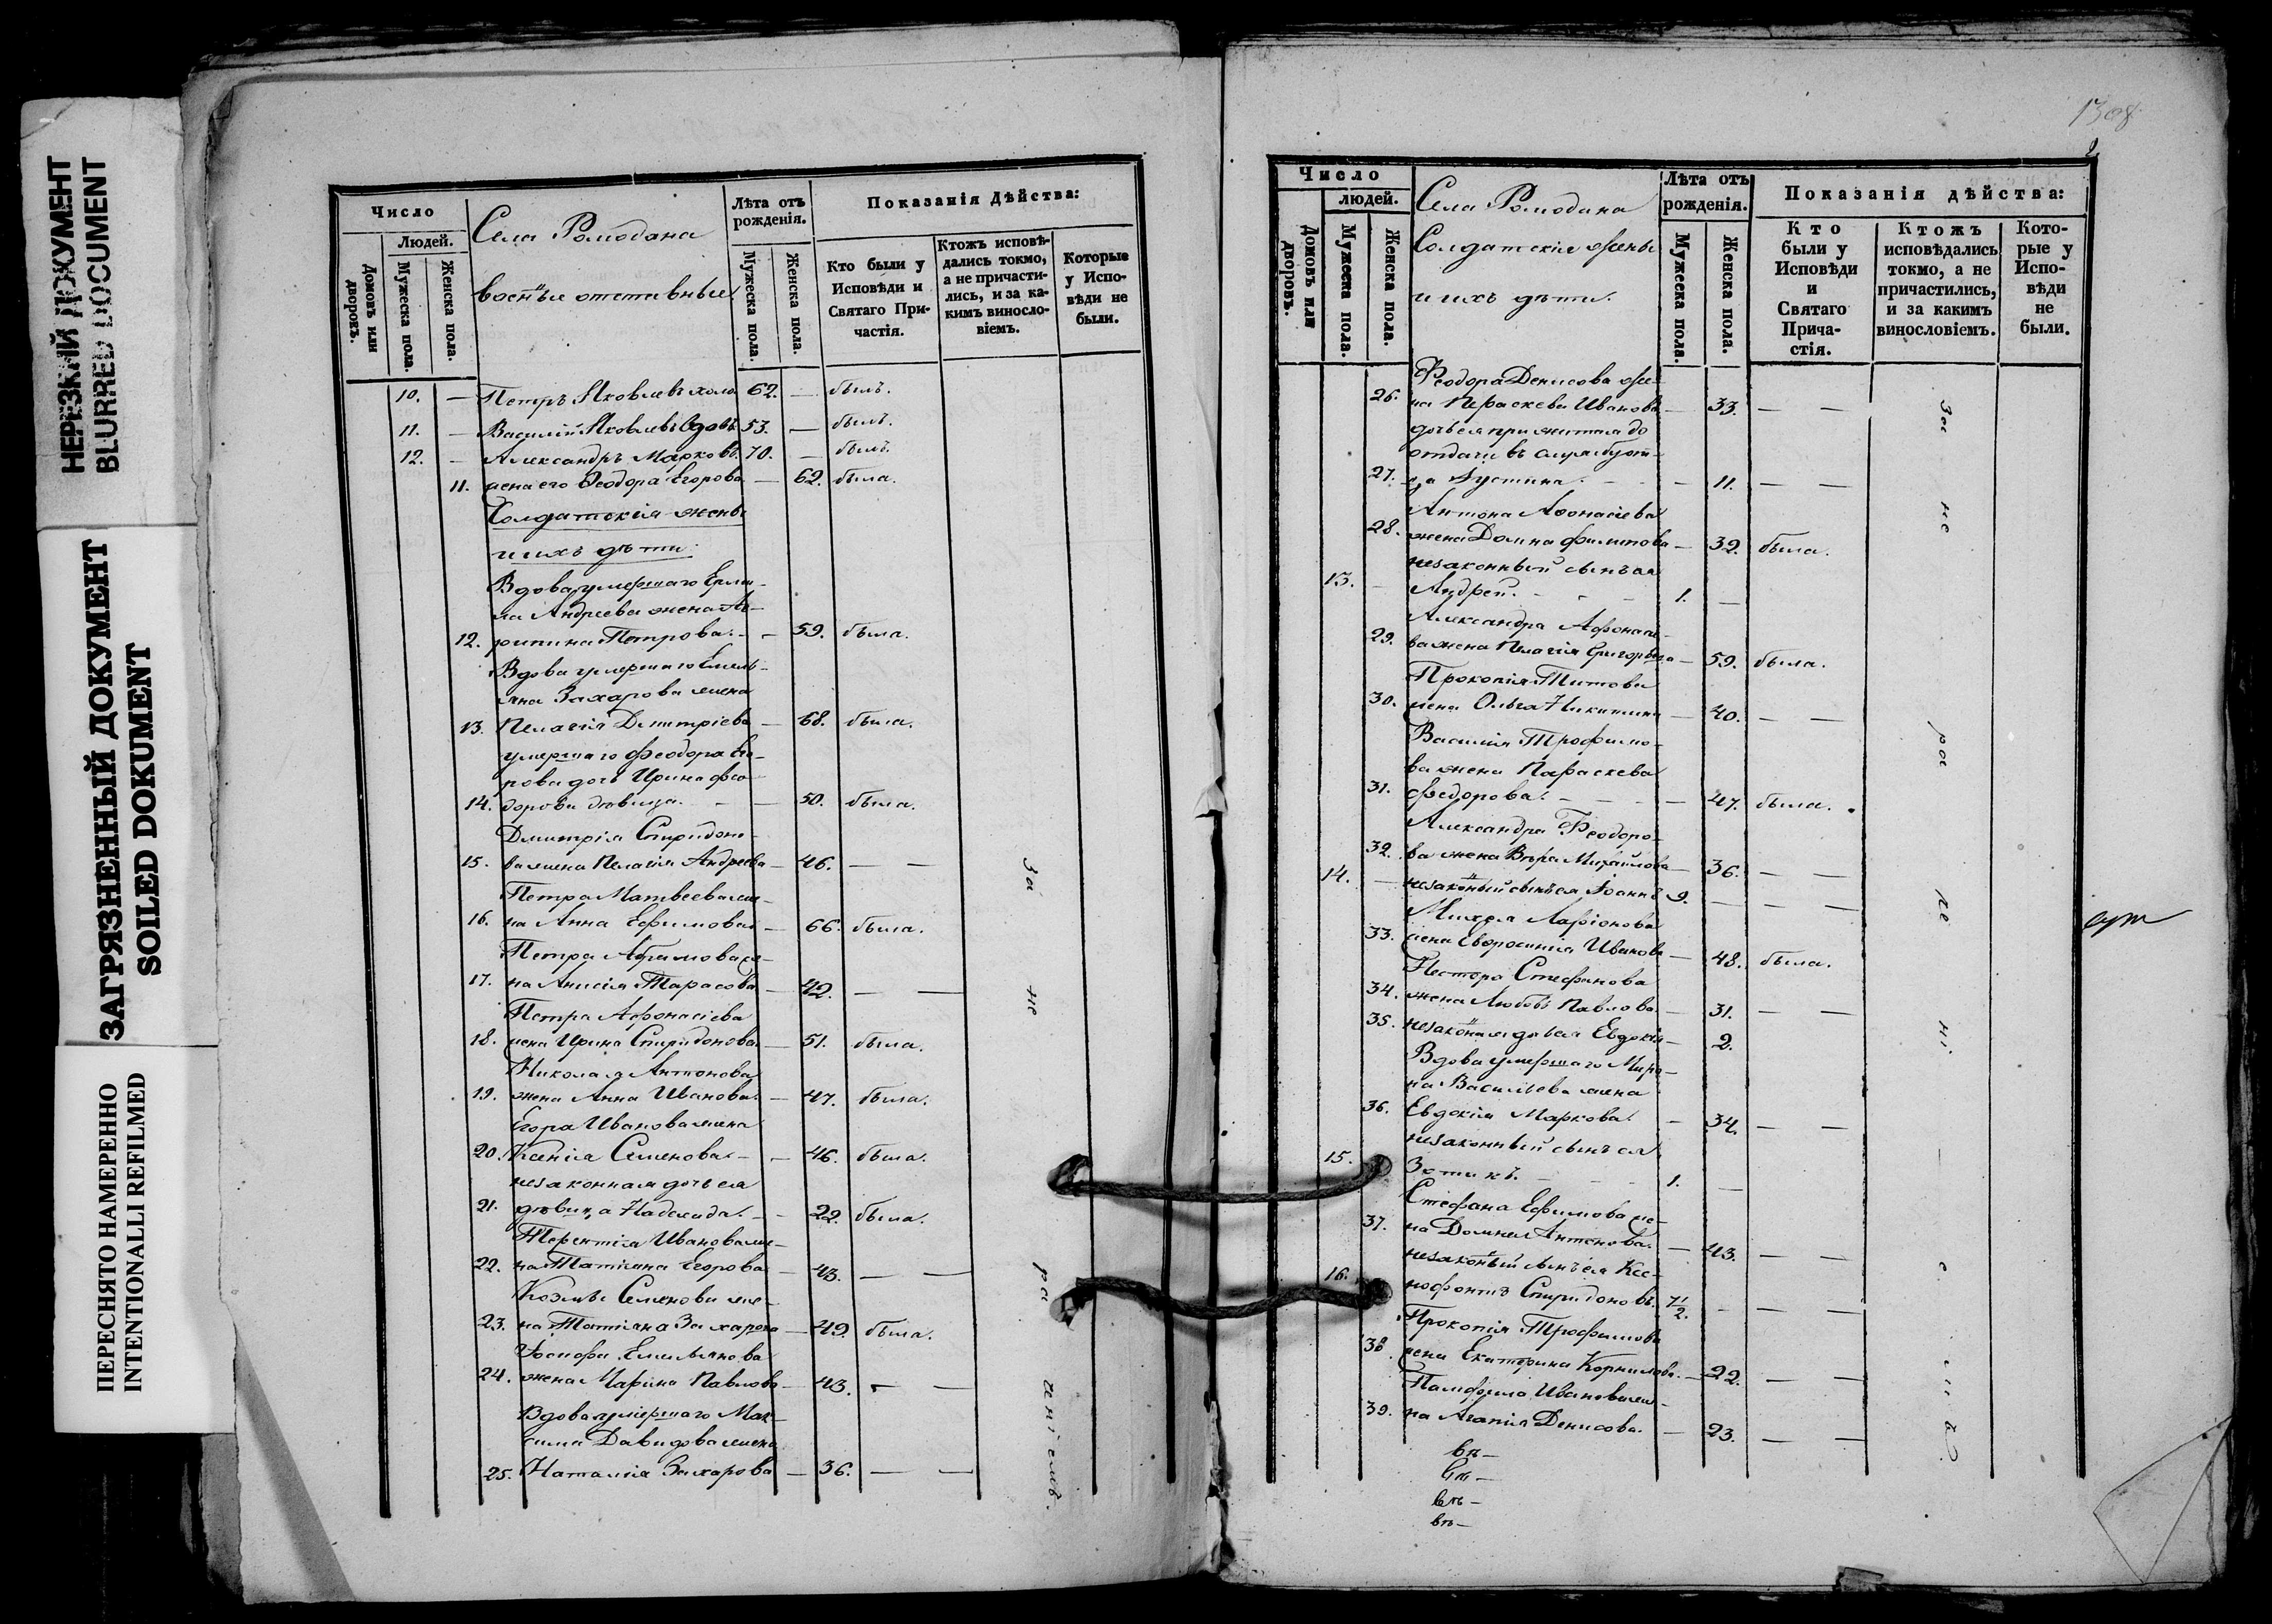 НЕРЕЗКИЙ ДОКУМЕНТ
BLURRED DOCUMENT
ЗАГРЯЗНЕННЫЙ ДОКУМЕНТ
SOILED DOKUMENT
ПЕРЕСНЯТО НАМЕРЕННО
INTENTIONALLI REFILMED
Число
Людей.
Домовъ или дворовъ.
Мужеска пола.
Женска пола.
Села Ромодана
военные отставные
Лѣта отъ рожденія.
Мужеска пола.
Женска пола.
Показанія Дѣйства:
Кто были у
Исповѣди и
Святаго При-
частія.
Ктожъ исповѣ-
дались токмо,
а не причасти-
лись, и за ка-
кимъ виносло-
віемъ.
Которые
у Испо-
вѣди не
были.
10. — Петръ Яковлевъ холо. 62. — былъ.
11. — Василій Яковлевъ вдовъ 53. — былъ.
12. — Александръ Марковъ. 70. — былъ.
11. жена его Феодора Егорова — 62. была.
Солдатскія жены
и ихъ дѣти
Вдова умершаго Ерми-
ла Андреева жена Ага-
12. рипина Петрова. — 59. была.
Вдова умершаго Емель-
яна Захарова жена
13. Пелагія Дмитріева — 68. была.
умершаго Феодора
рова дочь Ирина Фео-
14. дорова дѣвица. — — 50. была.
Дмитрія Спиридоно-
15. ва жена Пелагія Андреева — 46. — —
Петра Матвеева же-
16. на Анна Ефимова — 66. была.
Петра Абрамова же-
17. на Анисія Тарасова — 42. — —
Петра Афонасіева
18. жена Ирина Спиридонова. — 51. была.
Николая Антонова
19. жена Анна Иванова. — 47. была.
Егора Иванова жена
20. Ксенія Семенова. — 46. была.
незаконная дочь ея
21. дѣвица Надежда. — 22. была.
Терентія Иванова же-
22. на Татіана Егорова — 43. — —
Козмы Семенова же-
23. на Татіана Захарова — 49. была.
Іосифа Емельянова
24. жена Марина Павлова — 43. — —
Вдова умершаго Мак-
сима Давидова жена
25. Наталія Захарова — 36. — —
За не ра ченіемъ.
1308
2
Число
людей.
Домовъ или дворовъ.
Мужеска пола.
Женска пола.
Села Ромодана
Солдатскія жены
и ихъ дѣти.
Лѣта отъ рожденія.
Мужеска пола.
Женска пола.
Показанія дѣйства:
Кто
были у
Исповѣди
и
Святаго
Прича-
стія.
Ктожъ
исповѣдались
токмо, а не
причастились,
и за какимъ
винословіемъ.
Кото-
рые у
Испо-
вѣди
не
были.
Феодора Денисова же-
26. на Параскева Иванова — 33. — —
дочь ея прижитая до
отдачи въ службу от-
27. ца Іустина. — 11. — —
Антона Афонасіева
28. жена Домна Филипова — 32. была.
незаконный сынъ ея
13. — Андрей. — — 1. —
Александра Афонасіе-
29. ва жена Пелагія Григорьева — 59. была.
Прокопія Титова
30. жена Ольга Никитина — 40. — —
Василія Трофимо-
ва жена Параскева
31. Федорова. — — 47. была.
Александра Феодоро-
32. ва жена Вѣра Михайлова — 36. — —
14. — незаконный сынъ ея Іоаннъ 9. — — —
Ларіонова
33. жена Евфросинія Иванова — 48. была.
Нестора Стефанова
34. жена Любовь Павлова — 31. — —
35. незаконная дочь ея Евдокія — 2.
Вдова умершаго Миро-
на Васильева жена
36. Евдокія Маркова. — 34. — —
незаконный сынъ ея
15. Зотикъ. — — 1. —
Стефана Ефимова же-
37. на Домна Антонова. — 43. — —
незаконный сынъ ея Ксе-
16. нофонтъ Спиридоновъ. 7 1/2. — — —
Прокопія Трофимова
38. жена Екатерина Корнилова. — 22. — —
Памфила Иванова же-
39. на Агапія Денисова. — 23. — —
За не ра че ні е м ъ.